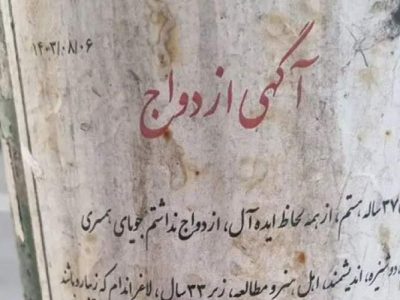 ۱۴۰۳/۰۸/۰۶
آگهی ازدواج
۳۷ ساله هستم، از همه لحاظ ایده آل، ازدواج نداشتم جویای همسری
دوشیزه، اندیشمند، اهل هنر و مطالعه، زیر ۳۳ سال، لاغر اندام که زیبارو باشد